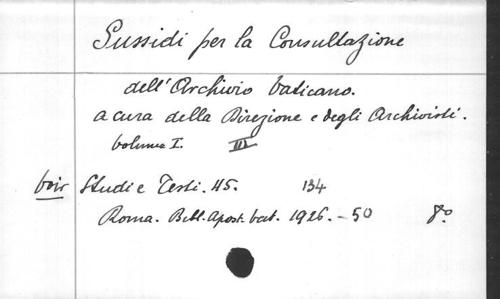 Sussidi per la Consultazione
dell'Archivio Vaticano.
a cura della Direzione e degli Archivisti.
Volume I. III
voir Studi e Testi. 45. 134
Roma. Bibl. Apost. Vat. 1926. - 50 8°